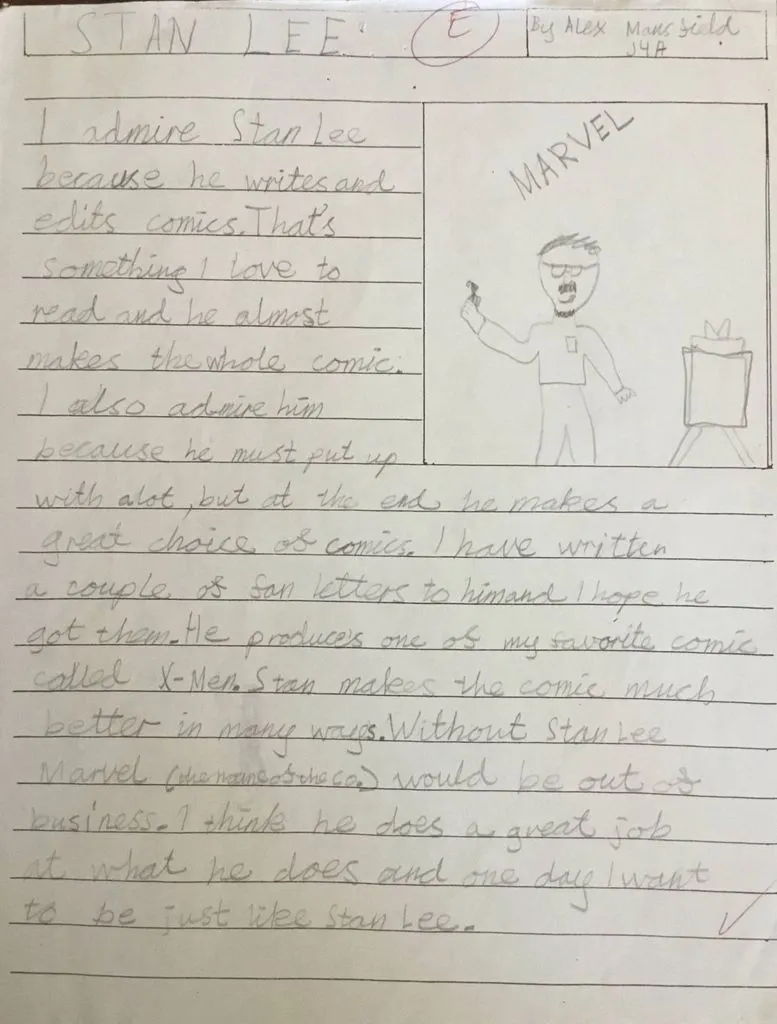 STAN LEE
E
By Alex Mansfield
J4A
MARVEL
I admire Stan Lee
because he writes and
edits comics. That's
something I love to
read and he almost
makes the whole comic.
I also admire him
because he must put up
with alot, but at the end he makes a
great choice of comics. I have written
a couple of fan letters to him and I hope he
got them. He produces one of my favorite comic
called X-Men. Stan makes the comic much
better in many ways. Without Stan Lee
Marvel (the name of the co.) would be out of
business. I think he does a great job
at what he does and one day I want
to be just like Stan Lee.